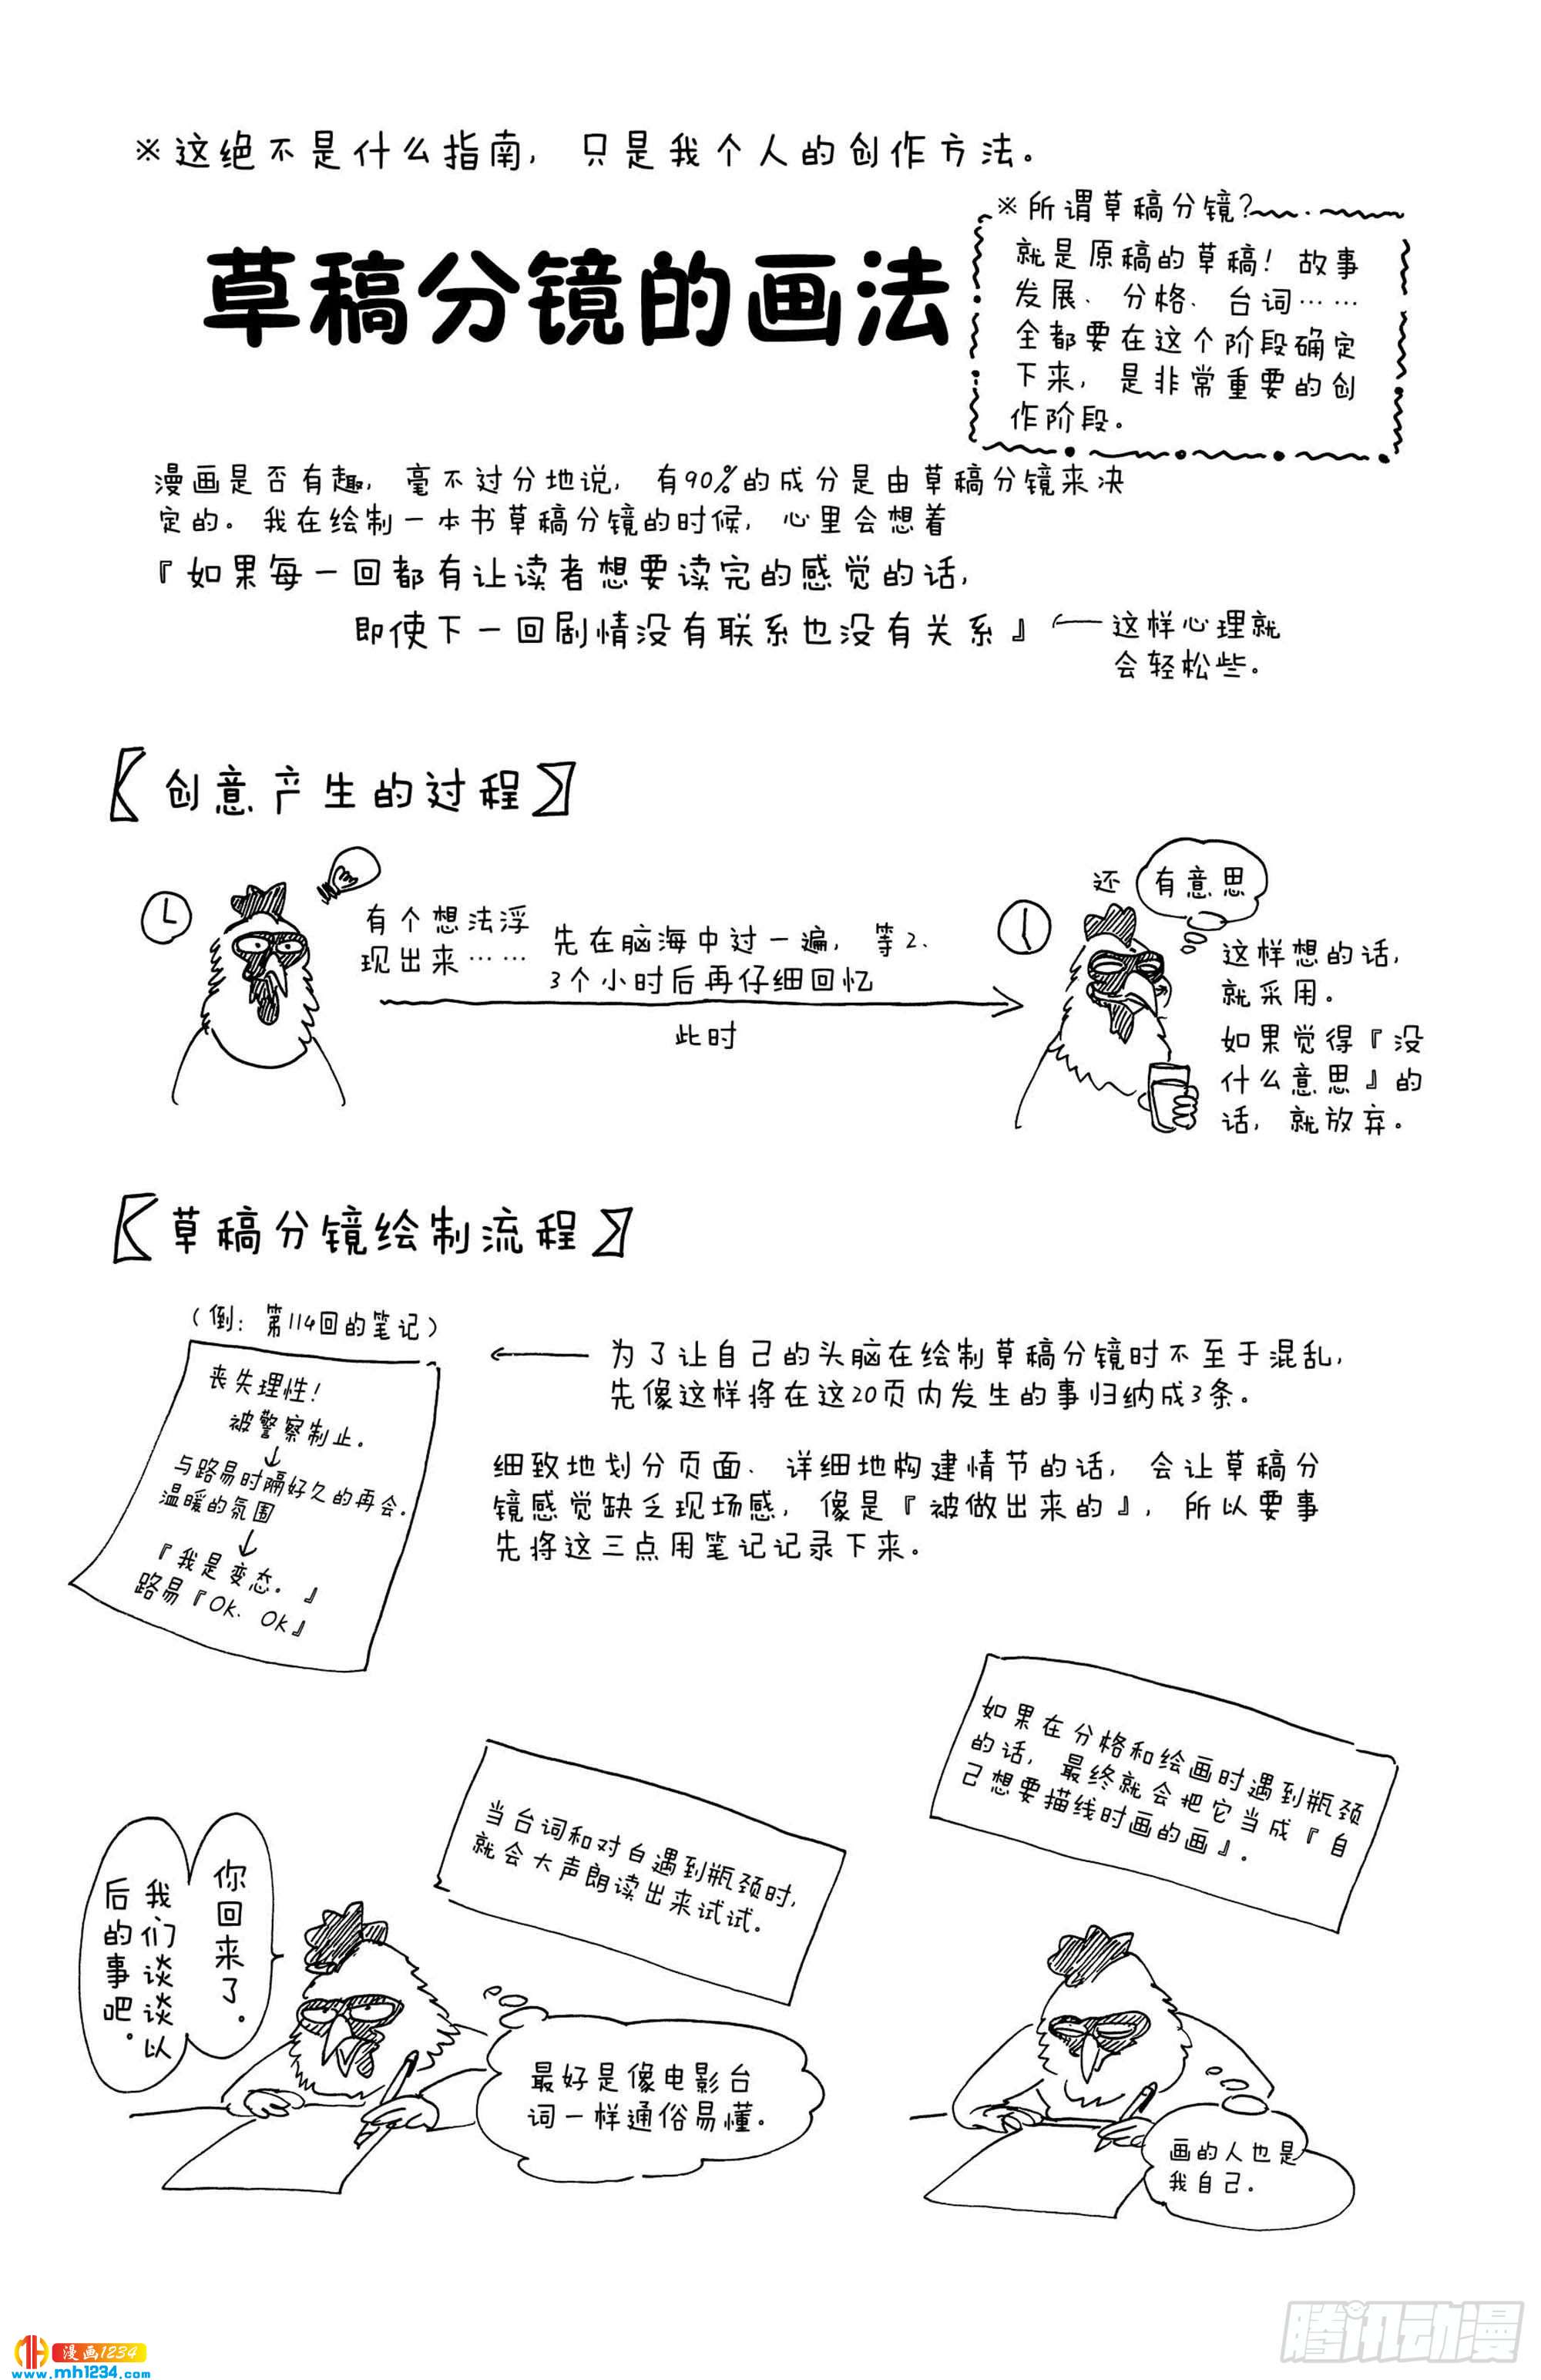 ※这绝不是什么指南，只是我个人的创作方法。
草稿分镜的画法
※所谓草稿分镜？
就是原稿的草稿！故事
发展、分格、台词……
全都要在这个阶段确定
下来，是非常重要的创
作阶段。
漫画是否有趣，毫不过分地说，有90%的成分是由草稿分镜来决
定的。我在绘制一本书草稿分镜的时候，心里会想着
『如果每一回都有让读者想要读完的感觉的话，
即使下一回剧情没有联系也没有关系』
这样心理就
会轻松些。
【创意产生的过程】
有个想法浮
现出来……
先在脑海中过一遍，等2、
3个小时后再仔细回忆
此时
还
有意思
这样想的话，
就采用。
如果觉得『没
什么意思』的
话，就放弃。
【草稿分镜绘制流程】
（倒：第114回的笔记）
丧失理性！
被警察制止。
与路易时隔好久的再会。
温暖的氛围
『我是变态。』
路易『OK、OK』
为了让自己的头脑在绘制草稿分镜时不至于混乱，
先像这样将在这20页内发生的事归纳成3条。
细致地划分页面、详细地构建情节的话，会让草稿分
镜感觉缺乏现场感，像是『被做出来的』，所以要事
先将这三点用笔记记录下来。
如果在分格和绘画时遇到瓶颈
的话，最终就会把它当成『自
己想要描线时画的画』。
当台词和对白遇到瓶颈时，
就会大声朗读出来试试。
你回来了。
我们谈谈以
后的事吧。
最好是像电影台
词一样通俗易懂。
画的人也是
我自己。
腾讯动漫
漫画1234
www.mh1234.com